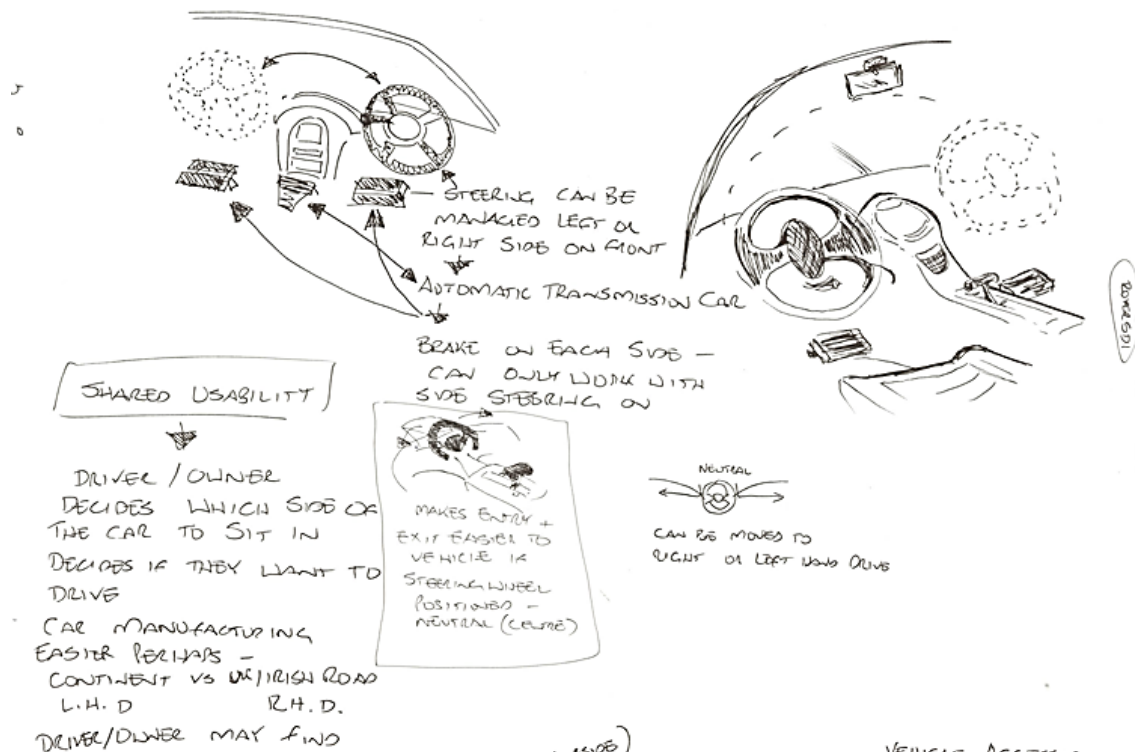 STEERING CAN BE
MANAGED LEFT OR
RIGHT SIDE ON FRONT
AUTOMATIC TRANSMISSION CAR
BRAKE ON EACH SIDE -
CAN ONLY WORK WITH
SIDE STEERING ON
ROVER SD1
SHARED USABILITY
DRIVER / OWNER
DECIDES WHICH SIDE OF
THE CAR TO SIT IN
DECIDES IF THEY WANT TO
DRIVE
CAR MANUFACTURING
EASIER PERHAPS -
CONTINENT VS UK/IRISH ROAD
L.H.D R.H.D.
DRIVER/OWNER MAY FIND
MAKES ENTRY +
EXIT EASIER TO
VEHICLE IF
STEERING WHEEL
POSITIONED -
NEUTRAL (CENTRE)
NEUTRAL
CAN BE MOVED TO
RIGHT OR LEFT HAND DRIVE